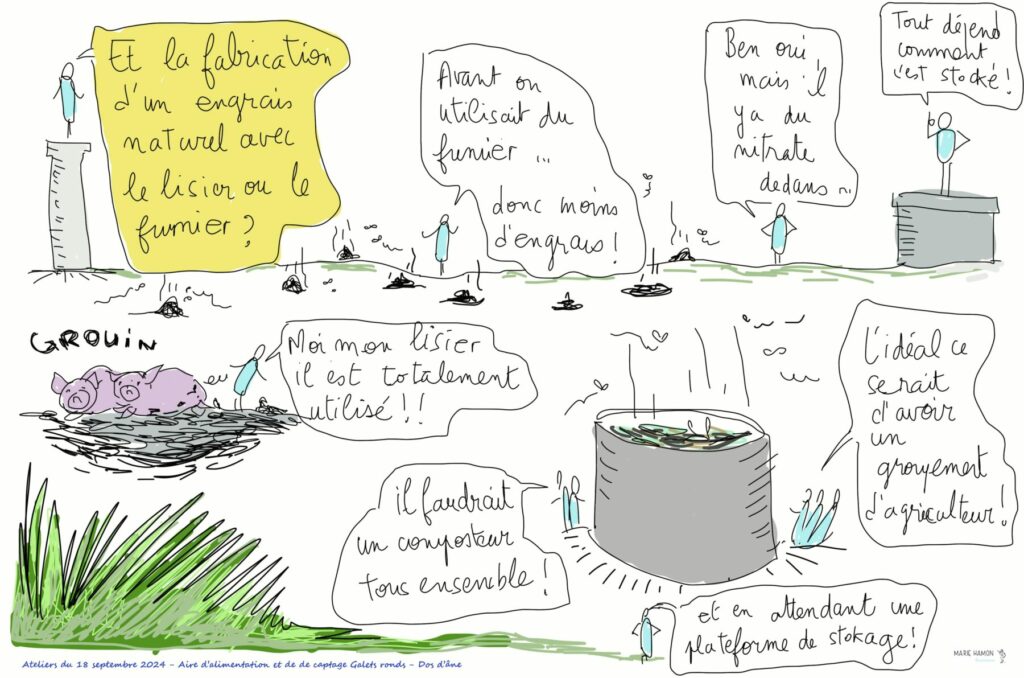 Et la fabrication
d'un engrais
naturel avec
le lisier ou le
fumier ?
Avant on
utilisait du
fumier ...
donc moins
d'engrais !
Ben oui,
mais il
y a du
nitrate
dedans ...
Tout dépend
comment
c'est stocké !
GROUIN
Moi mon lisier
il est totalement
utilisé !!
L'idéal ce
serait
d'avoir
un
groupement
d'agriculteur !
il faudrait
un composteur
tous ensemble !
et en attendant une
plateforme de stokage !
Ateliers du 18 septembre 2024 - Aire d'alimentation et de de captage Galets ronds - Dos d'âne
MARIE HAMON